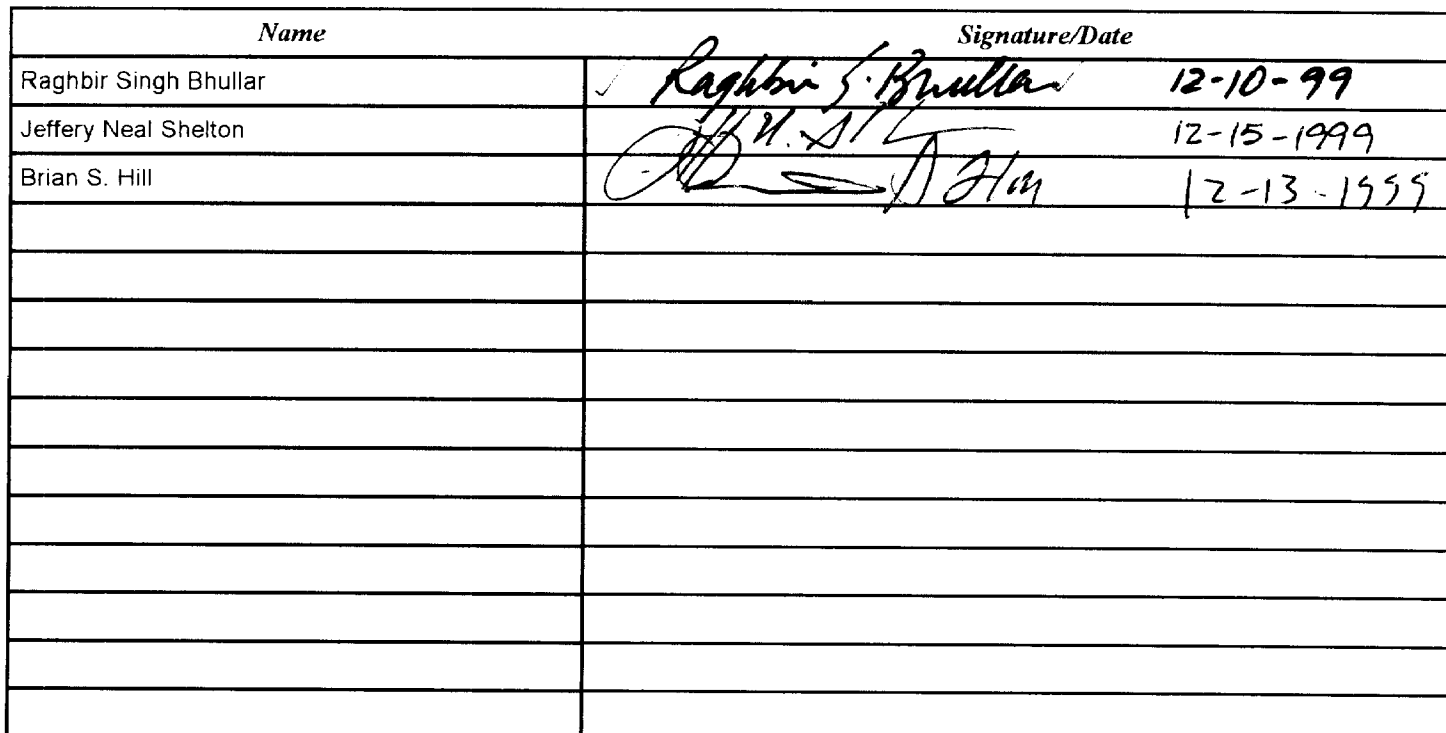 Name Signature/Date
Raghbir Singh Bhullar Raghbir S. Bhullar 12-10-99
Jeffery Neal Shelton 12-15-1999
Brian S. Hill 12-13-1999